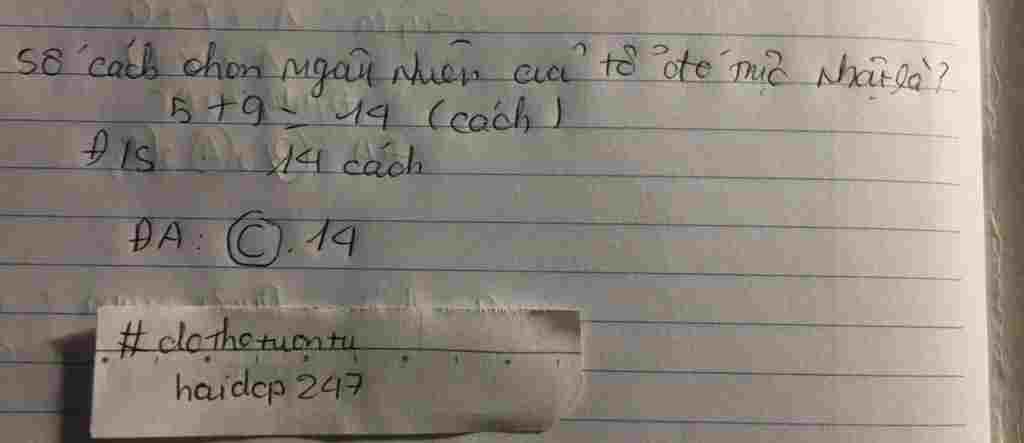 số cách chọn ngẫu nhiên của tổ để nhật là?
5 + 9 = 14 (cách)
Đ/S: 14 cách
ĐA: C. 14
#dothotuontu
haidcp 247